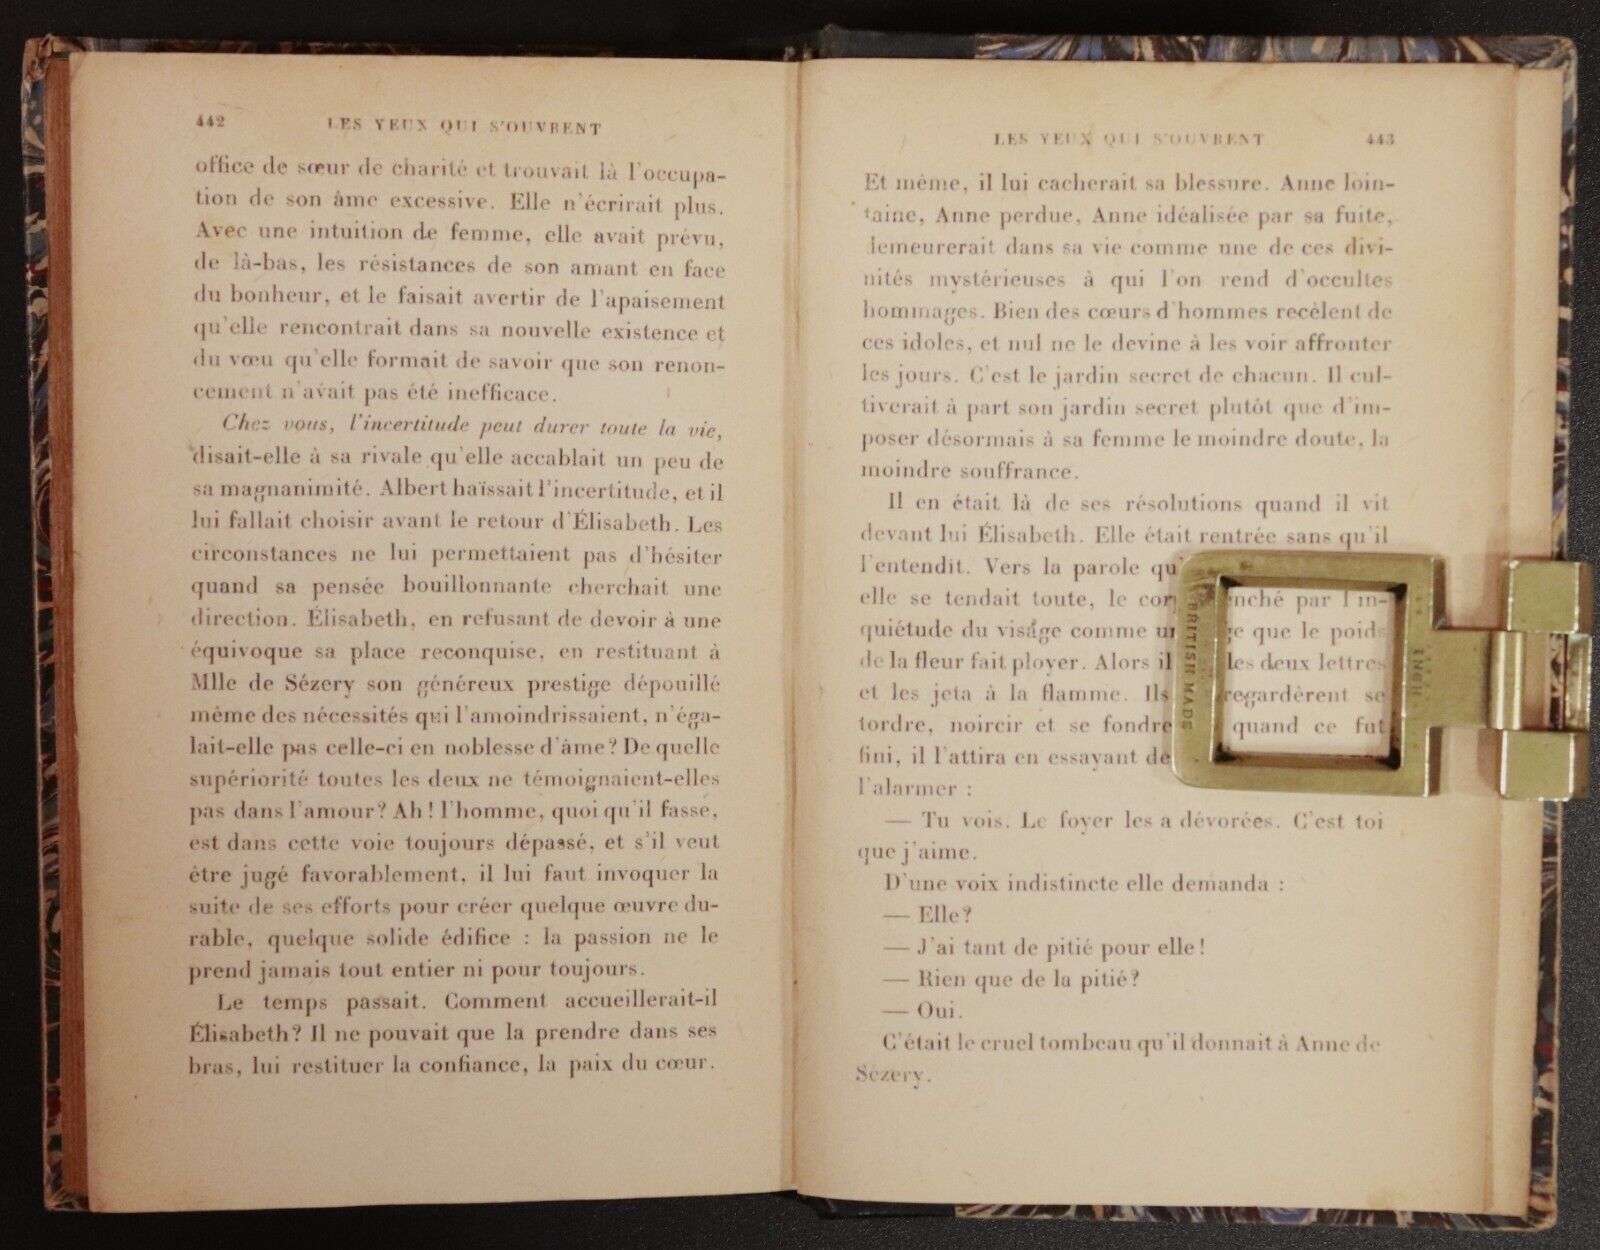 442 LES YEUX QUI S'OUVRENT
office de sœur de charité et trouvait là l'occupa-
tion de son âme excessive. Elle n'écrirait plus.
Avec une intuition de femme, elle avait prévu,
de là-bas, les résistances de son amant en face
du bonheur, et le faisait avertir de l'apaisement
qu'elle rencontrait dans sa nouvelle existence et
du vœu qu'elle formait de savoir que son renon-
cement n'avait pas été inefficace.
Chez vous, l'incertitude peut durer toute la vie,
disait-elle à sa rivale qu'elle accablait un peu de
sa magnanimité. Albert haïssait l'incertitude, et il
lui fallait choisir avant le retour d'Élisabeth. Les
circonstances ne lui permettaient pas d'hésiter
quand sa pensée bouillonnante cherchait une
direction. Élisabeth, en refusant de devoir à une
équivoque sa place reconquise, en restituant à
Mlle de Sézery son généreux prestige dépouillé
même des nécessités qui l'amoindrissaient, n'éga-
lait-elle pas celle-ci en noblesse d'âme? De quelle
supériorité toutes les deux ne témoignaient-elles
pas dans l'amour? Ah! l'homme, quoi qu'il fasse,
est dans cette voie toujours dépassé, et s'il veut
être jugé favorablement, il lui faut invoquer la
suite de ses efforts pour créer quelque œuvre du-
rable, quelque solide édifice : la passion ne le
prend jamais tout entier ni pour toujours.
Le temps passait. Comment accueillerait-il
Élisabeth? Il ne pouvait que la prendre dans ses
bras, lui restituer la confiance, la paix du cœur.
LES YEUX QUI S'OUVRENT 443
Et même, il lui cacherait sa blessure. Anne loin-
taine, Anne perdue, Anne idéalisée par sa fuite,
demeurerait dans sa vie comme une de ces divi-
nités mystérieuses à qui l'on rend d'occultes
hommages. Bien des cœurs d'hommes recèlent de
ces idoles, et nul ne le devine à les voir affronter
les jours. C'est le jardin secret de chacun. Il cul-
tiverait à part son jardin secret plutôt que d'im-
poser désormais à sa femme le moindre doute, la
moindre souffrance.
Il en était là de ses résolutions quand il vit
devant lui Élisabeth. Elle était rentrée sans qu'il
l'entendit. Vers la parole qu'
elle se tendait toute, le cor nché par l'in-
quiétude du visage comme un ge que le poids
de la fleur fait ployer. Alors il les deux lettres
et les jeta à la flamme. Ils regardèrent se
tordre, noircir et se fondre quand ce fut
fini, il l'attira en essayant de
l'alarmer :
— Tu vois. Le foyer les a dévorées. C'est toi
que j'aime.
D'une voix indistincte elle demanda :
— Elle?
— J'ai tant de pitié pour elle!
— Rien que de la pitié?
— Oui.
C'était le cruel tombeau qu'il donnait à Anne de
Sézery.
BRITISH MADE
INCH